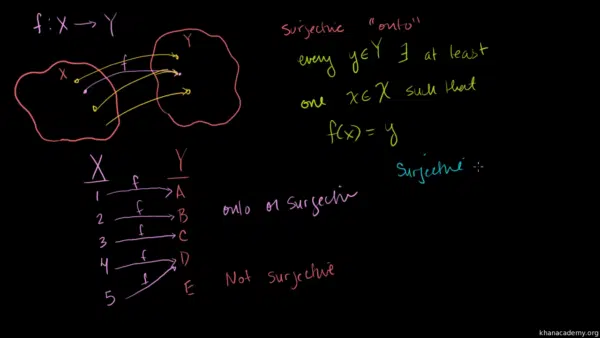 f : X → Y
X
f
Y
surjective "onto"
every y∈Y ∃ at least
one x∈X such that
f(x) = y
Surjective
X Y
1 f A
2 f B
3 f C
4 f D
5 f E
onto or surjective
Not surjective
khanacademy.org